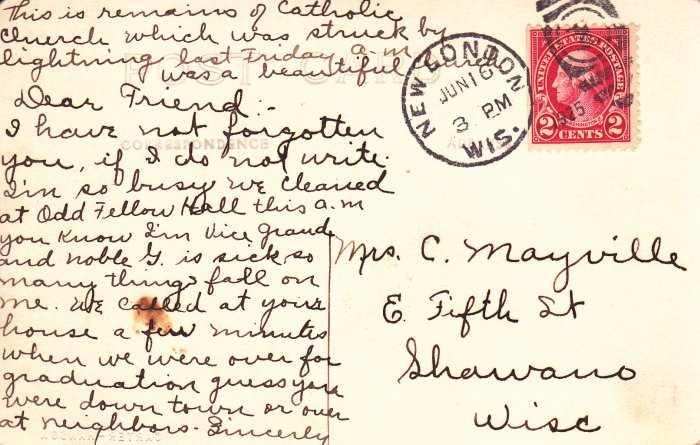 This is remains of Catholic
Church which was struck by
lightning last Friday a.m
was a beautiful church
POST CARD
Dear Friend -
I have not forgotten
you, if I do not write.
CORRESPONDENCE
I'm so busy we cleaned
at Odd Fellow Hall this a.m
you know I'm Vice Grand
and Noble G. is sick so
many things fall on
me. We called at your
house a few minutes
when we were over for
graduation guess you
were down town or over
at neighbors. Sincerely
NEW LONDON
JUN 16
3 PM
WIS.
UNITED STATES POSTAGE
WASHINGTON
2 CENTS 2
Mrs. C. Mayville
E. Fifth St
Shawano
Wisc